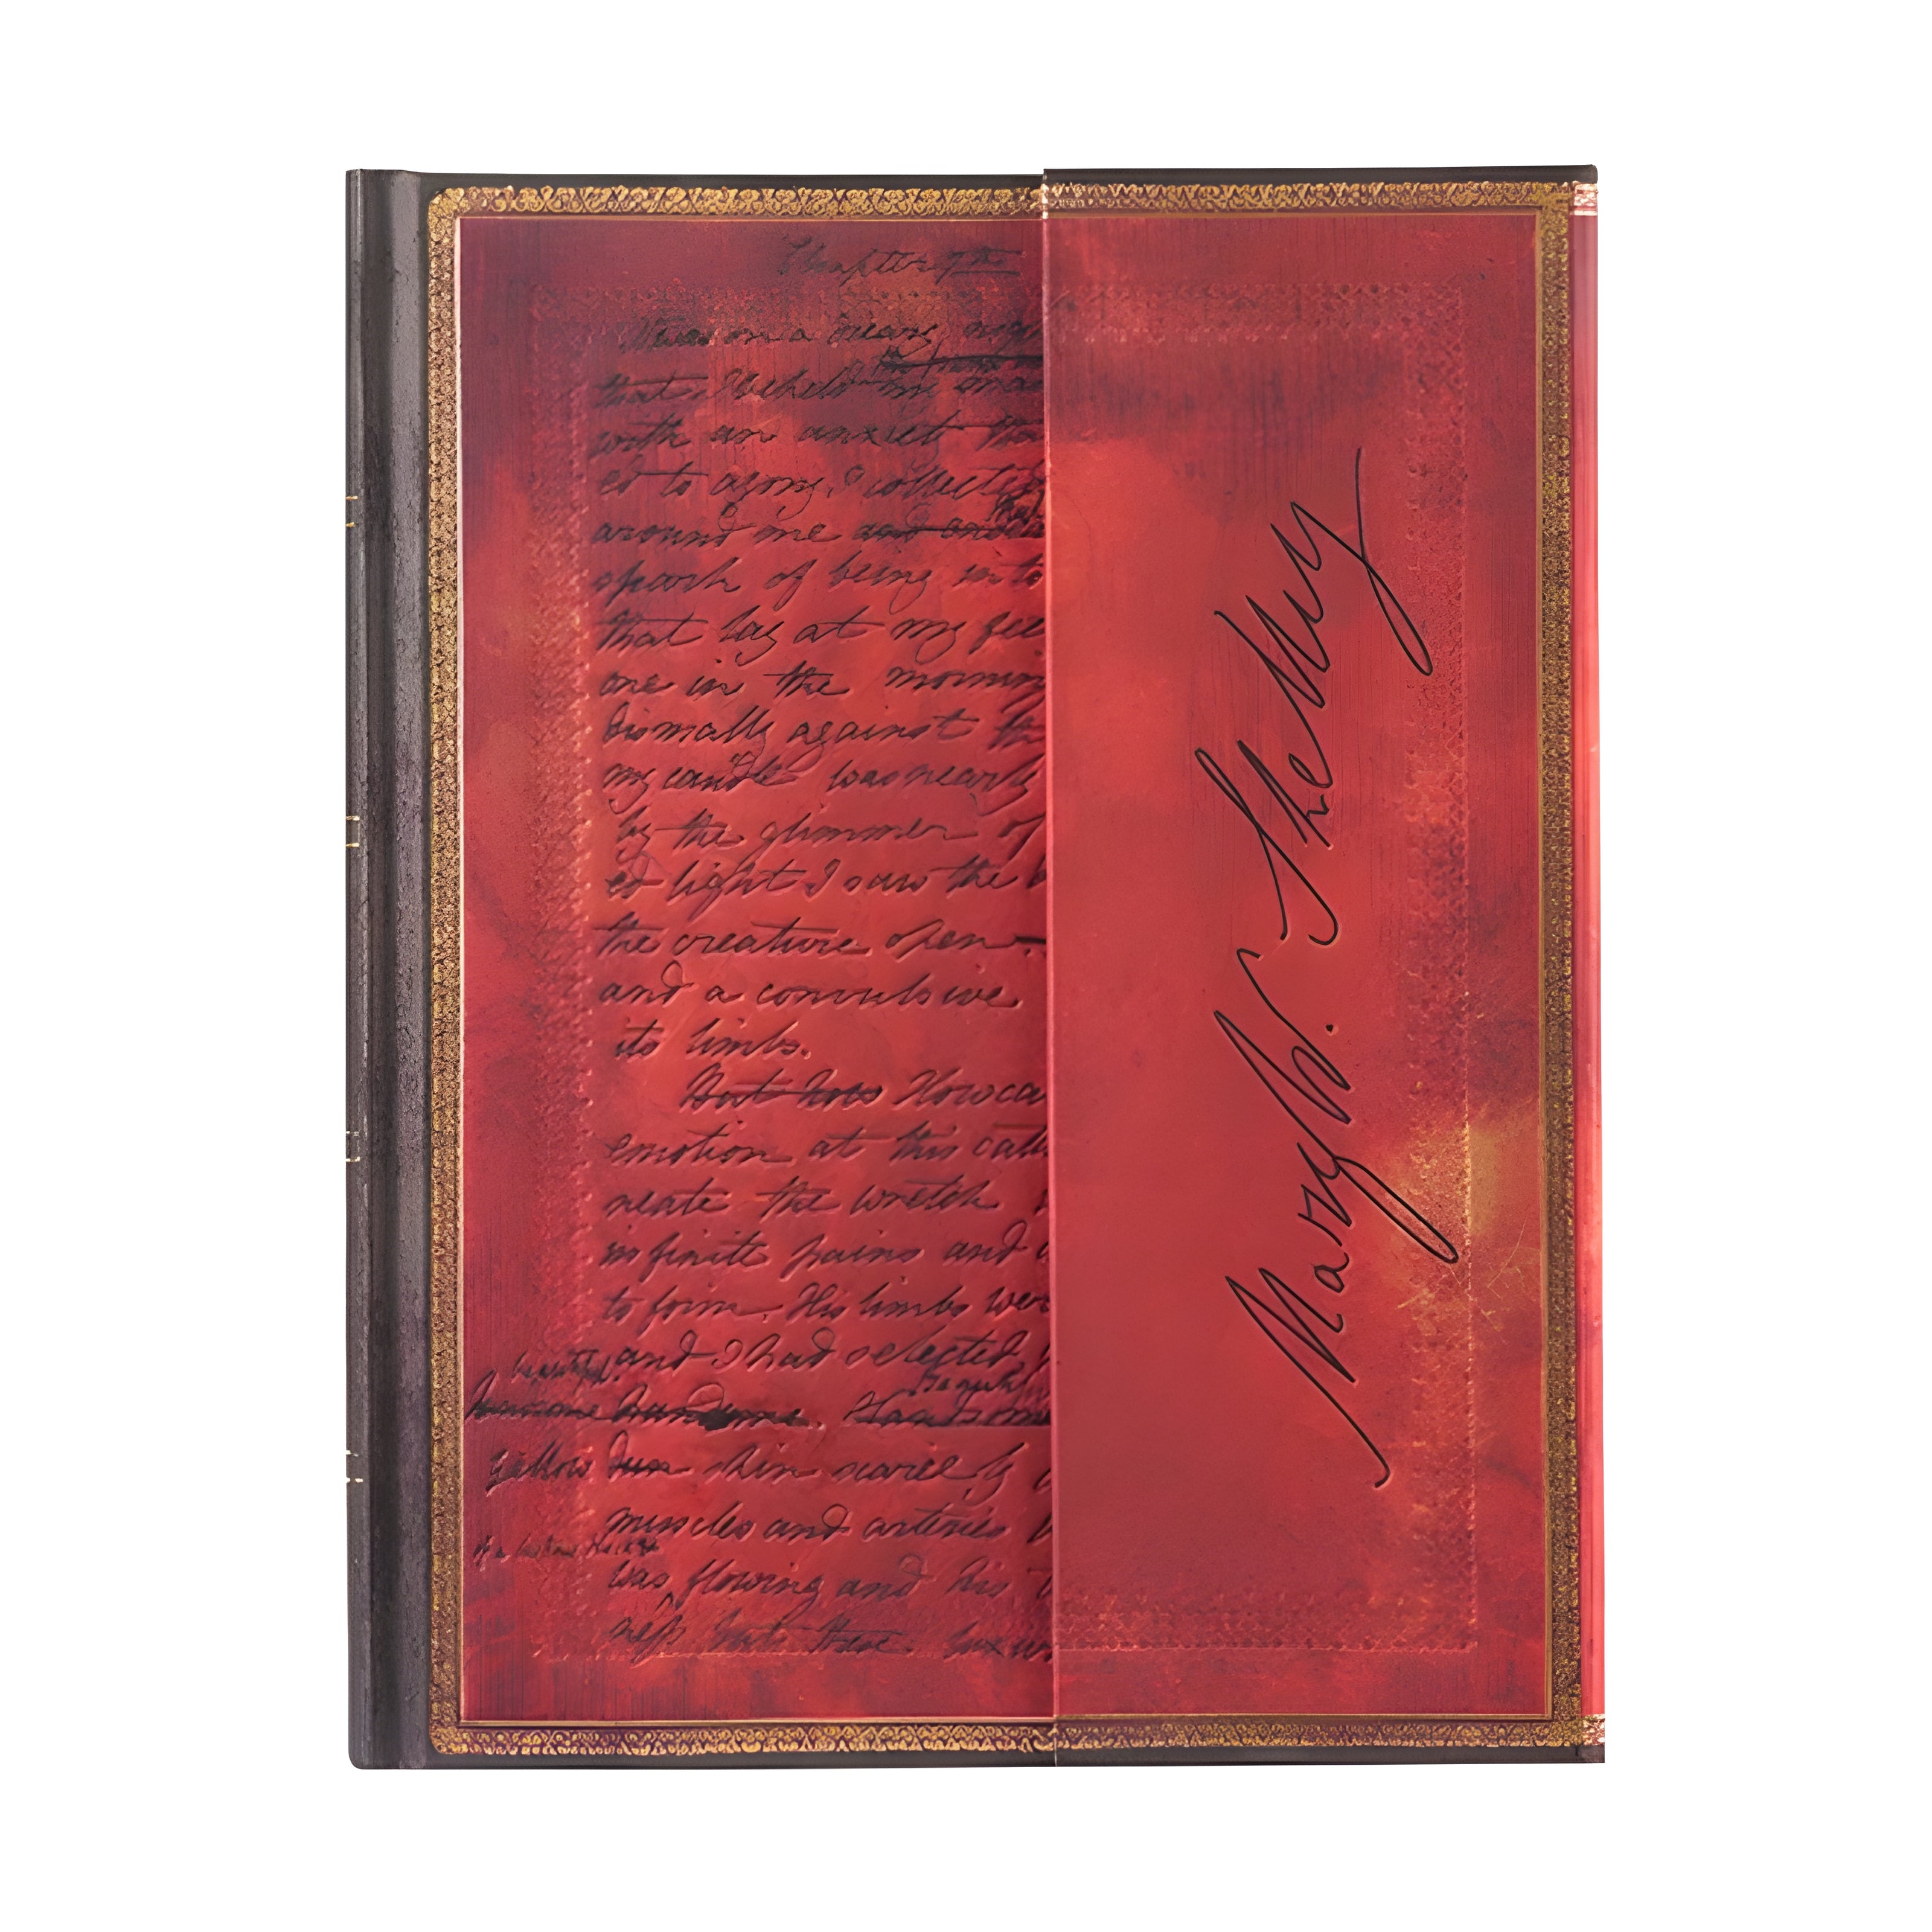 Chapter 7th
It was on a dreary nig
that I beheld my man
with an anxiety
ed to agony, I collected
around me and
spark of being into
that lay at my fee
one in the morning
dismally against th
my candle was nearly
by the glimmer of
ed light I saw the
the creature open
and a convulsive
its limbs.
But how How ca
emotion at this cata
neate the wretch
infinite pains and
to form. His limbs wer
and I had selected
beautiful
handsome. Handsome
yellow dun skin scarcely
muscles and arteries
of a lustrous black &
was flowing and his
ness but these luxu
Mary W. Shelley